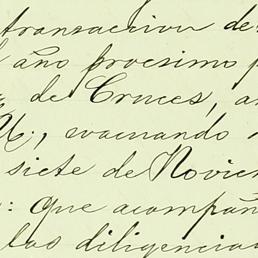 transaccion de
año procsimo p
de Cruces, a
evacuando
siete de Noviem
: que acompañ
las diligencia